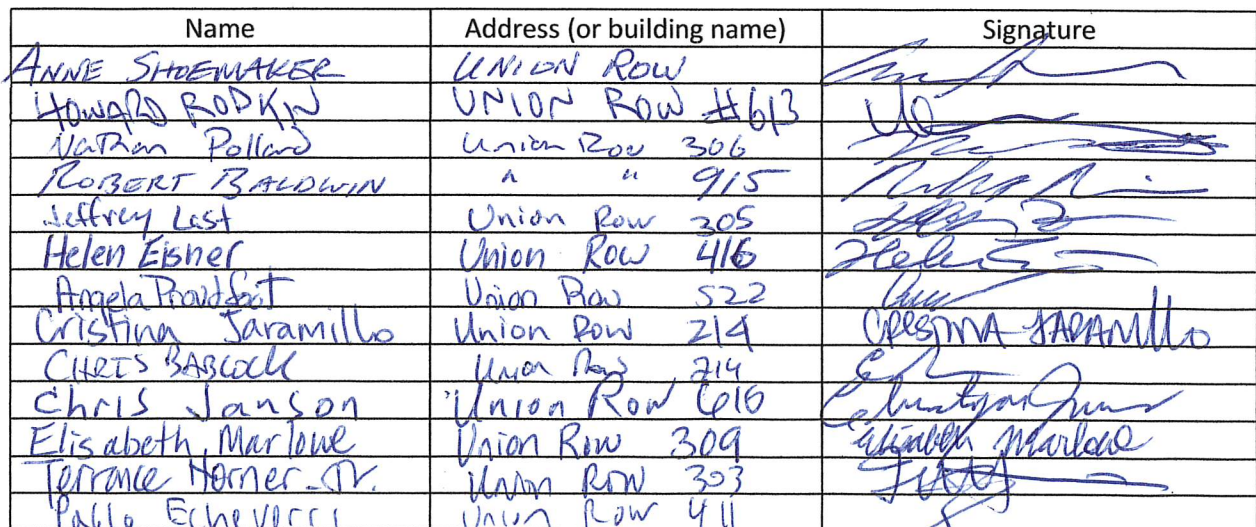 Name Address (or building name) Signature
ANNE SHOEMAKER UNION ROW
HOWARD RODKIN UNION ROW #613
Nathan Pollard Union Row 306
ROBERT BALDWIN " " 915
Jeffrey Last Union Row 305
Helen Eisner Union Row 416 Helen
Angela Proudfoot Union Row 522
Cristina Jaramillo Union Row 214 CRISTINA JARAMILLO
CHRIS BABCOCK Union Row 214
Chris Janson Union Row 616
Elisabeth Marlowe Union Row 309 Elisabeth Marlowe
Terrance Horner Jr. Union Row 303
Pablo Echeverri Union Row 411